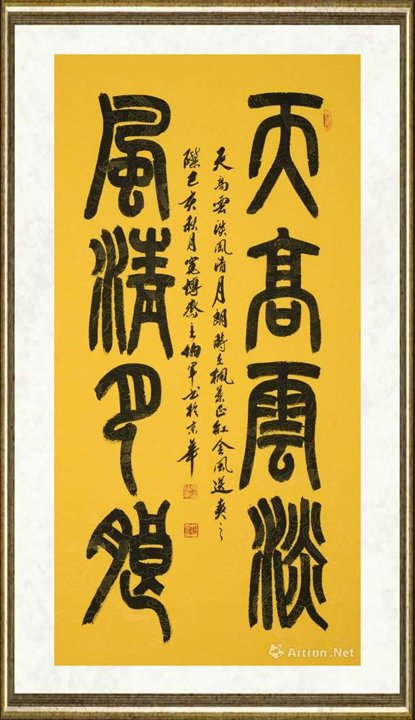 天高雲淡
風清月朗
天高雲淡風清月朗時在楓葉正紅金風送爽之
際己亥秋月寬博齋主軍书於京華
Artron.Net